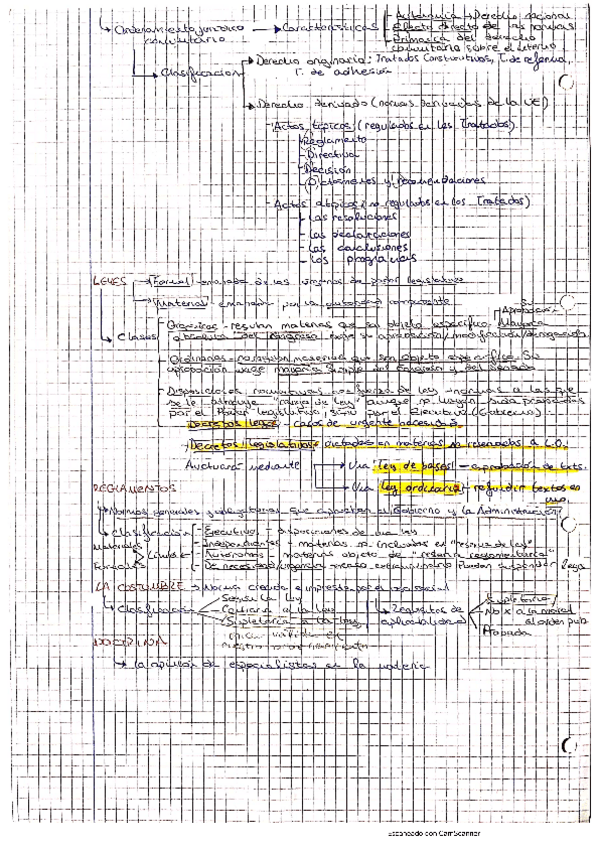 Ordenamiento jurídico comunitario → Características
Autonomía → Derecho nacional
Efecto directo de las normas
Primacía del derecho comunitario sobre el interno
Clasificación → Derecho originario: Tratados Constitutivos, T. de reforma,
T. de adhesión
Derecho derivado (normas derivadas de la UE)
Actos típicos (regulados en los Tratados)
Reglamento
Directiva
Decisión
Dictámenes y Recomendaciones
Actos atípicos no regulados en los Tratados)
- Las resoluciones
- Las declaraciones
- Las conclusiones
- Los programas
LEYES → Formal - emanada de los órganos de poder legislativo
Material - emanada por la autoridad competente
Clases
Orgánicas - regulan materias que su objeto específico.
Aprobación
Mayoría absoluta del Congreso
aprobación/modificación/derogación
Ordinarias - materias que son objeto específico. Su
aprobación exige mayoría simple del Congreso y del Senado
Disposiciones normativas con fuerza de ley - normas a las que
se le atribuye "rango de ley" aunque no hayan sido
por el Poder legislativo, sino por el Ejecutivo (Gobierno)
Decretos leyes - casos de urgente necesidad.
Decretos legislativos dictados en materias no reservadas a L.O.
mediante → Una ley de bases - aprobación de txts.
Una ley ordinaria - refundir textos en
uno.
REGLAMENTOS
Normas generales que aprueban el Gobierno y la Administración
Clasificación
Ejecutivos - disposiciones de una ley
Materiales
Límites
Formales
Independientes - materias no incluidas en "reserva de ley"
Autónomos - materias objeto de "reserva reglamentaria"
De necesidad/urgencia - Pueden suspender leyes
LA COSTUMBRE → Norma creada e impuesta por el uso social
Clasificación
Según la ley
Contraria a la ley
Supletoria a la ley
Requisitos de aplicabilidad
Supletoria
No X a la moral
al orden púb.
Probada
DOCTRINA
→ la opinión de especialistas en la materia
Escaneado con CamScanner